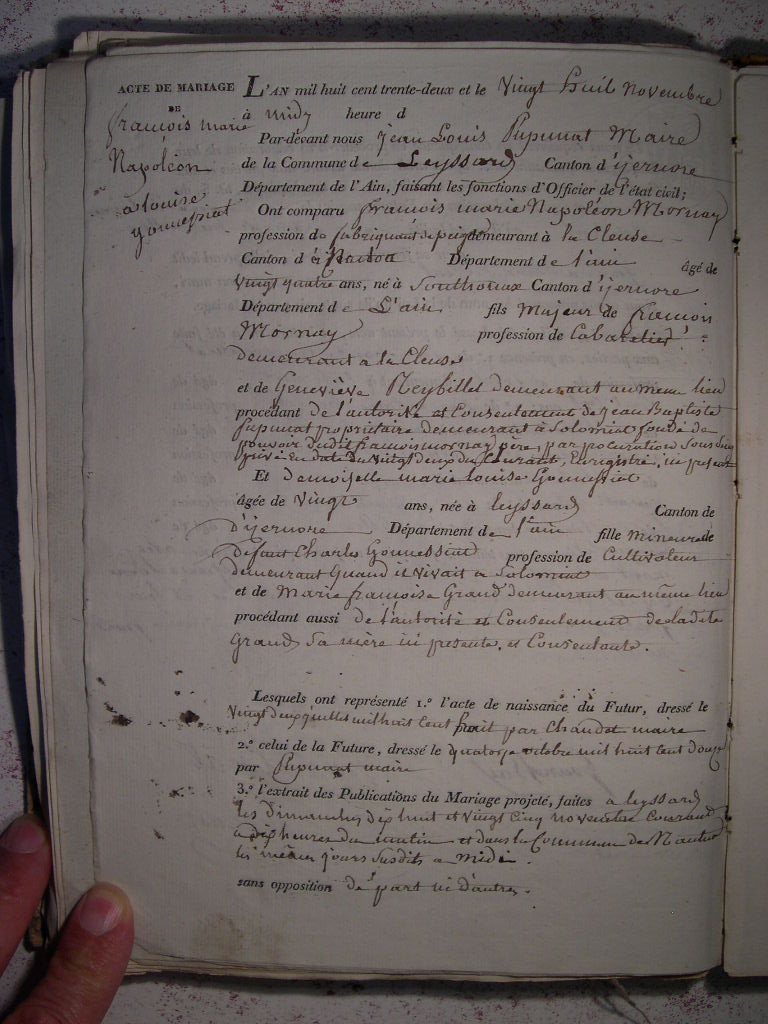 ACTE DE MARIAGE
DE
françois marie
Napoléon
à louise
gonnessiat
L'AN mil huit cent trente-deux et le Vingt huit Novembre
à midy heure d
Par-devant nous Jean Louis Pupunat Maire
de la Commune de Leyssard Canton d'yernore
Département de l'Ain, faisant les fonctions d'Officier de l'état civil;
Ont comparu françois marie Napoléon Mornay
profession de fabriquant de peignes demeurant à la Cleuse
Canton de Nantua Département de l'ain âgé de
Vingt quatre ans, né à Sonthonax Canton d'yernore
Département de L'ain fils Majeur de françois
Mornay profession de Cabaretier
demeurant a la Cleuse
et de Geneviève Reybillet demeurant au meme lieu
procédant de l'autorité et Consentement de jean Baptiste
pupunat propriétaire demeurant à Solomiat fondé de
pouvoir dudit françois mornay père, par procuration Sous Sing
privé En date du Vingt deux du Courant, Enregistré, ici présent
Et demoiselle marie louise Gonnessiat
âgée de Vingt ans, née à leyssard Canton de
D'yernore Département de l'ain fille mineure de
défunt Charles Gonnessiat profession de Cultivateur
demeurant Quand il vivait a Solomiat
et de Marie françoise Grand demeurant au même lieu
procédant aussi de l'autorité et Consentement de ladite
Grand Sa mère ici présente, et Consentante.
Lesquels ont représenté 1.° l'acte de naissance du Futur, dressé le
Vingt deux juillet mil huit Cent huit par Chaudet maire
2.° celui de la Future, dressé le quatorze octobre mil huit Cent douze
par Pupunat maire
3.° l'extrait des Publications du Mariage projeté, faites a leyssard
les dimanches dix huit et Vingt Cinq novembre Courant
a dix heures du matin et dans la Commune de Nantua
les mêmes jours Susdits a midi.
sans opposition de part ni d'autres.